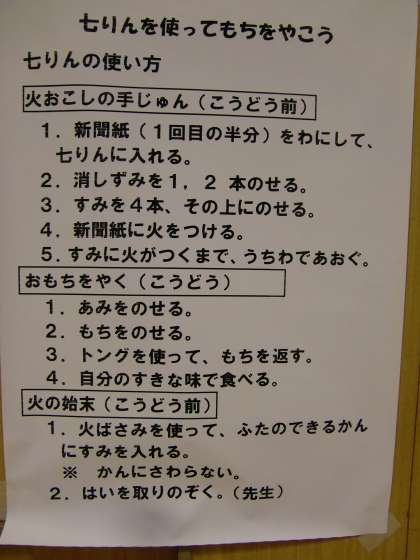 七りんを使ってもちをやこう
七りんの使い方
火おこしの手じゅん（こうどう前）
１．新聞紙（１回目の半分）をわにして、
七りんに入れる。
２．消しずみを１，２ 本のせる。
３．すみを４本、その上にのせる。
４．新聞紙に火をつける。
５．すみに火がつくまで、うちわであおぐ。
おもちをやく（こうどう）
１．あみをのせる。
２．もちをのせる。
３．トングを使って、もちを返す。
４．自分のすきな味で食べる。
火の始末（こうどう前）
１．火ばさみを使って、ふたのできるかん
にすみを入れる。
※ かんにさわらない。
２．はいを取りのぞく。（先生）